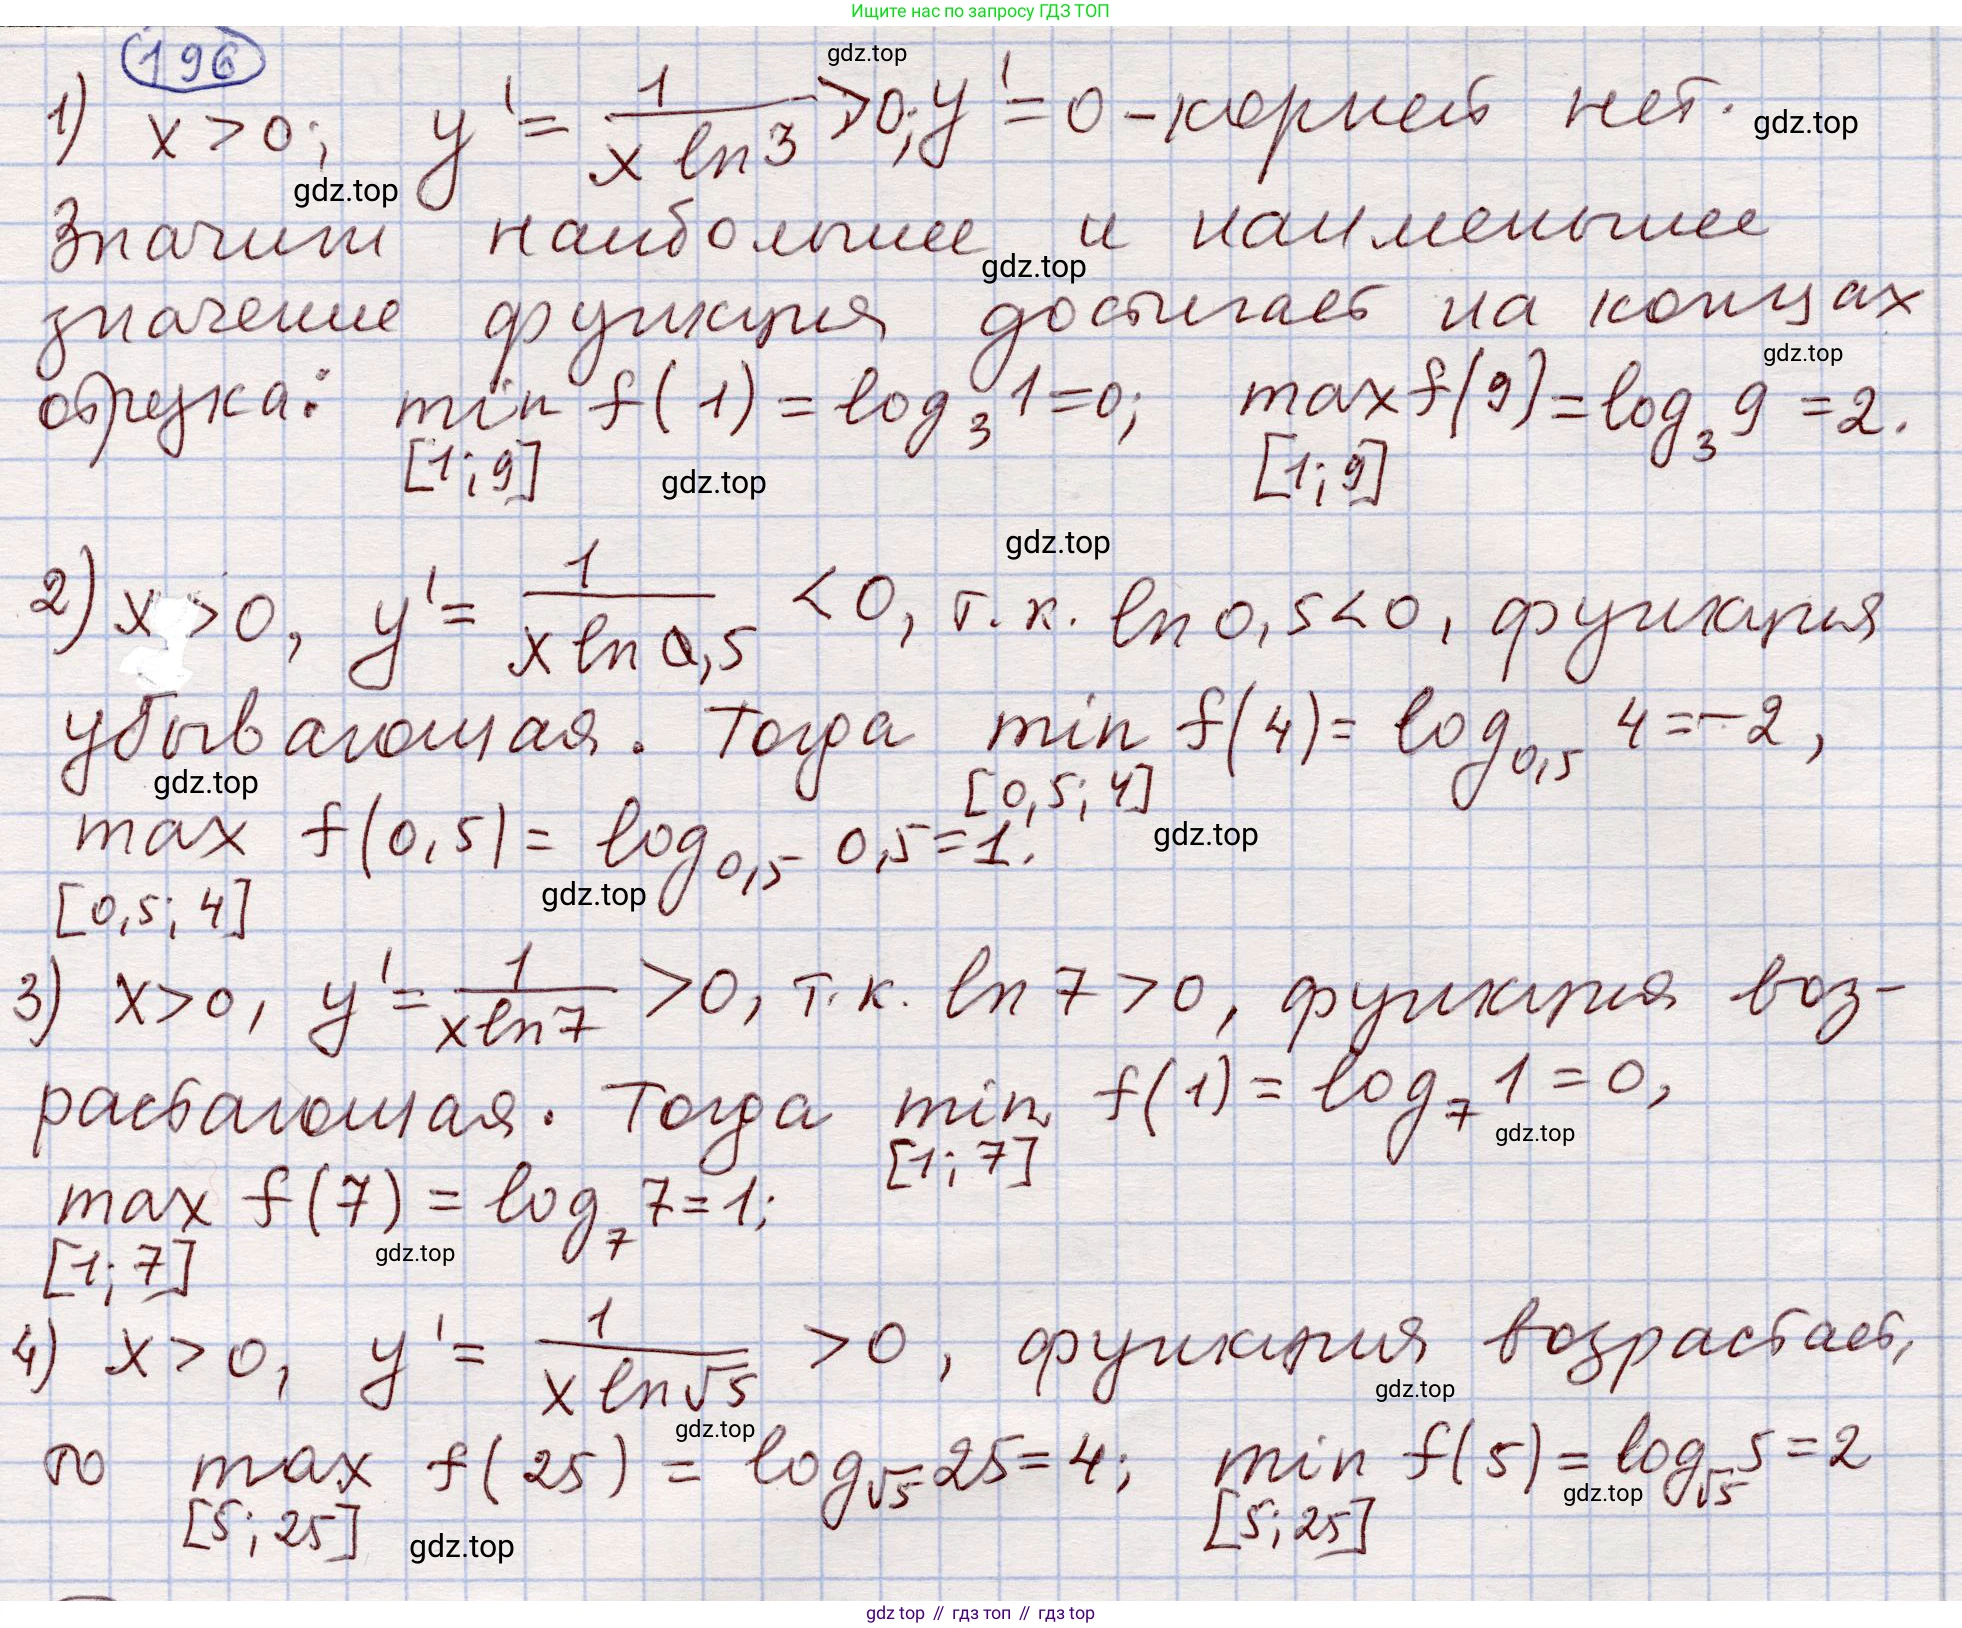 Ищите нас по запросу ГДЗ ТОП
196
gdz.top
1) x > 0; y' = 1/(x ln 3) > 0; y' = 0 - корней нет.
gdz.top
gdz.top
Значит наибольшее и наименьшее
gdz.top
значение функция достигает на концах
gdz.top
отрезка: min f(1) = log₃ 1 = 0; max f(9) = log₃ 9 = 2.
[1; 9] [1; 9]
gdz.top
gdz.top
2) x > 0, y' = 1/(x ln 0,5) < 0, т.к. ln 0,5 < 0, функция
убывающая. Тогда min f(4) = log₀,₅ 4 = -2,
gdz.top
[0,5; 4]
max f(0,5) = log₀,₅ 0,5 = 1.
gdz.top
gdz.top
[0,5; 4]
3) x > 0, y' = 1/(x ln 7) > 0, т.к. ln 7 > 0, функция воз-
растающая. Тогда min f(1) = log₇ 1 = 0,
gdz.top
[1; 7]
max f(7) = log₇ 7 = 1;
gdz.top
[1; 7]
4) x > 0, y' = 1/(x ln √5) > 0, функция возрастает,
gdz.top
gdz.top
то max f(25) = log_√5 25 = 4; min f(5) = log_√5 5 = 2
gdz.top
[5; 25] [5; 25]
gdz.top
gdz top // гдз топ // гдз top